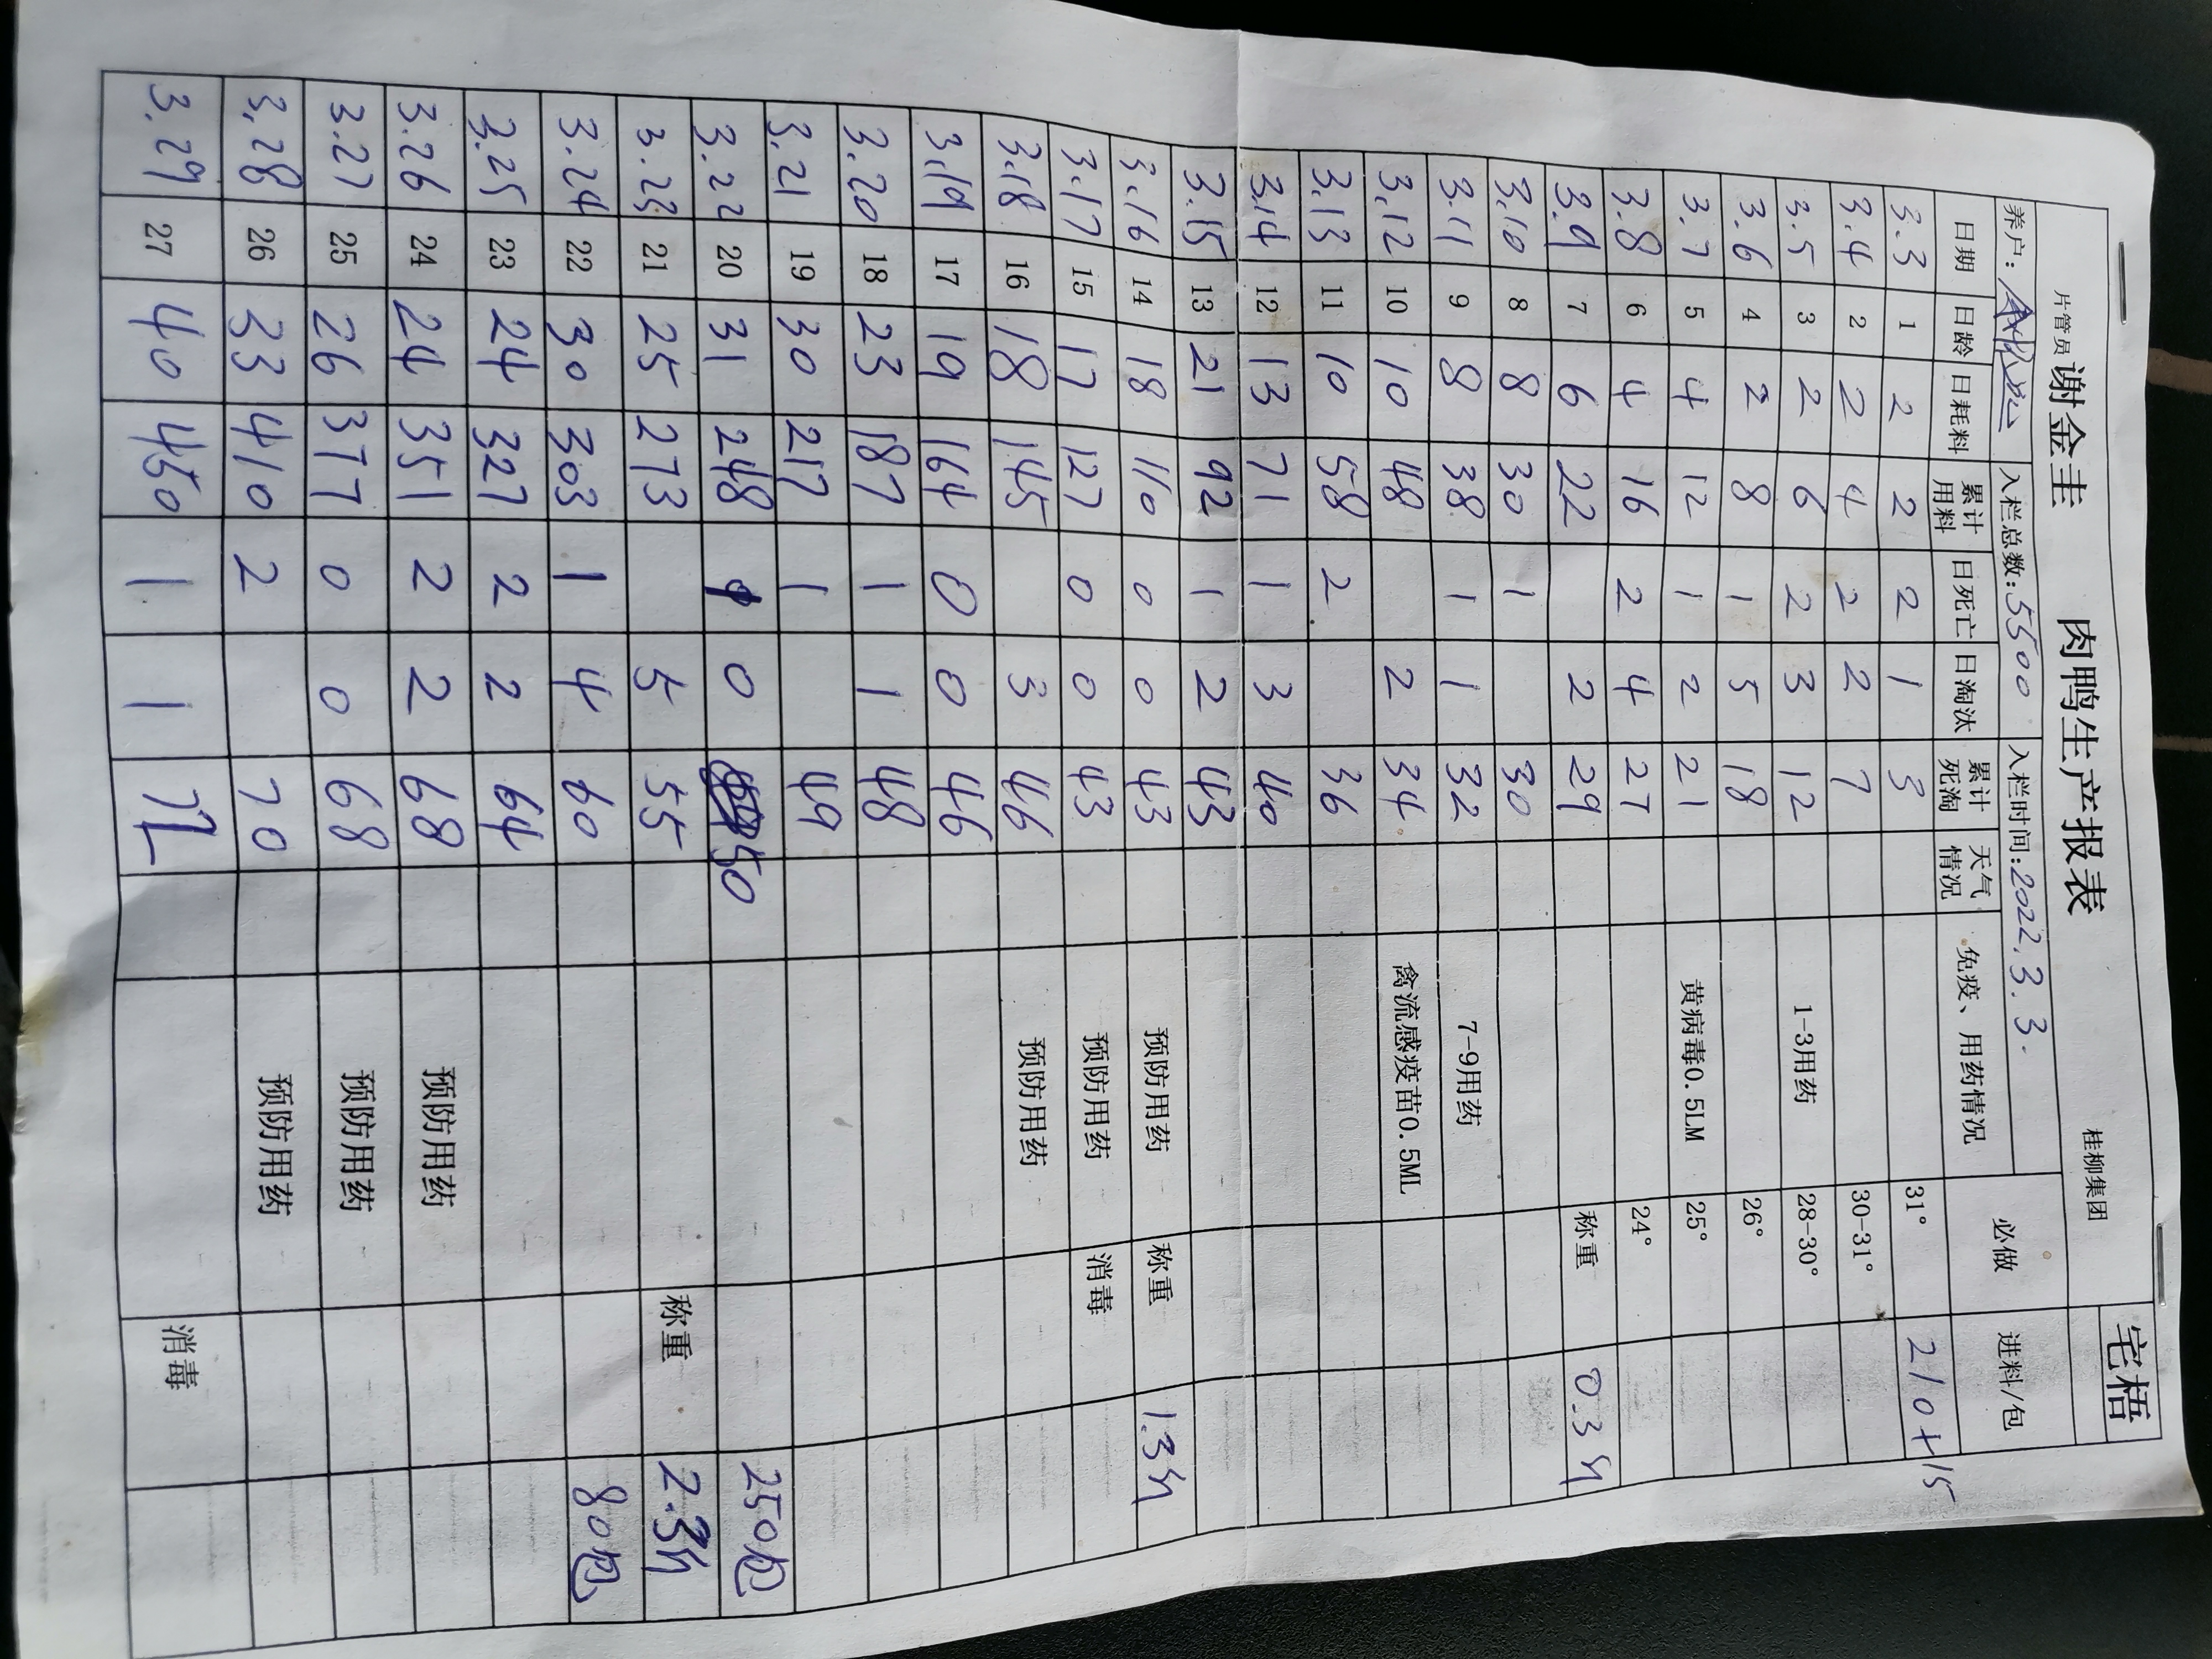 宅梧
片管员 谢金圭 肉鸭生产报表 桂柳集团
养户: 入栏总数:5500 入栏时间:2022.3.3. 必做 进料/包
日期 日龄 日耗料 累计用料 日死亡 日淘汰 累计死淘 天气情况 免疫、用药情况
3.3 1 2 2 2 1 3 31° 210+15
3.4 2 2 4 2 2 7 30-31°
3.5 3 2 6 2 3 12 1-3用药 28-30°
3.6 4 2 8 1 5 18 26°
3.7 5 4 12 1 2 21 黄病毒0.5LM 25°
3.8 6 4 16 2 4 27 24°
3.9 7 6 22 2 29 称重 0.3斤
3.10 8 8 30 1 30
3.11 9 8 38 1 1 32 7-9用药
3.12 10 10 48 2 34 禽流感疫苗0.5ML
3.13 11 10 58 2 36
3.14 12 13 71 1 3 40
3.15 13 21 92 1 2 43
3.16 14 18 110 0 0 43 预防用药 称重 1.3斤
3.17 15 17 127 0 0 43 预防用药 消毒
3.18 16 18 145 3 46 预防用药
3.19 17 19 164 0 0 46
3.20 18 23 187 1 1 48
3.21 19 30 217 1 49
3.22 20 31 248 0 50 250包
3.23 21 25 273 5 55 称重 2.3斤
3.24 22 30 303 1 4 60 80包
3.25 23 24 327 2 2 64
3.26 24 24 351 2 2 68 预防用药
3.27 25 26 377 0 0 68 预防用药
3.28 26 33 410 2 70 预防用药
3.29 27 40 450 1 1 72 消毒